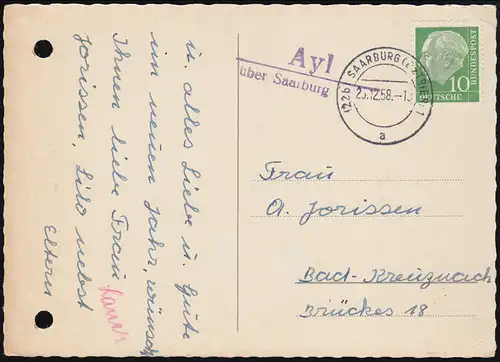 in, alles Liebe u. Gute
im neuen Jahr, wünsch
Ihnen liebe Frau
Jorissen, Lilo nebst
Eltern
Ayl
über Saarburg
(22b) SAARBURG (BZ TRIER) 1
29.12.58.-1
a
10
BUNDESPOST
DEUTSCHE
Frau
A. Jorissen
Bad-Kreuznach
Brückes 18